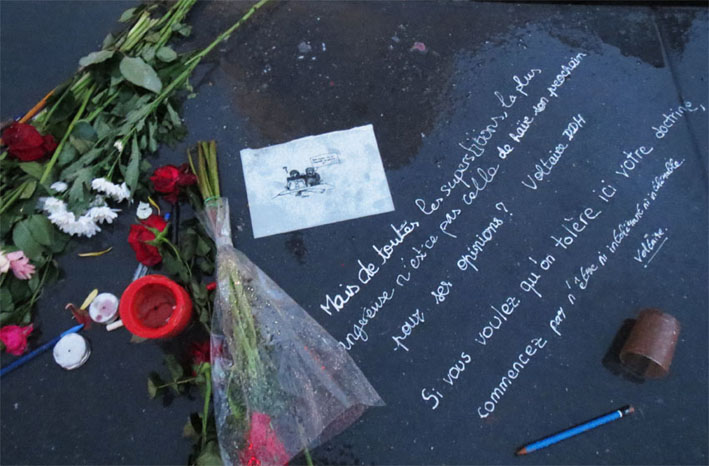 Mais de toutes les superstitions, la plus
angereuse n'est-ce pas celle de haïr son prochain
pour ses opinions? Voltaire
Si vous voulez qu'on tolère ici votre doctrine,
commencez par n'être ni intolérant ni intolérable
Voltaire.